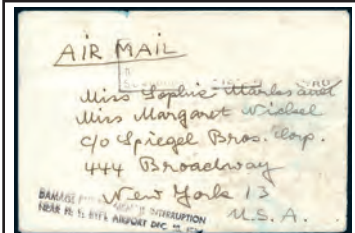 AIR MAIL
Miss Sophie Marks and
Miss Margaret Nickel
c/o Spiegel Bros. Corp.
444 Broadway
New York 13
U.S.A.
DAMAGE INTERRUPTION
NEAR AIRPORT DEC.